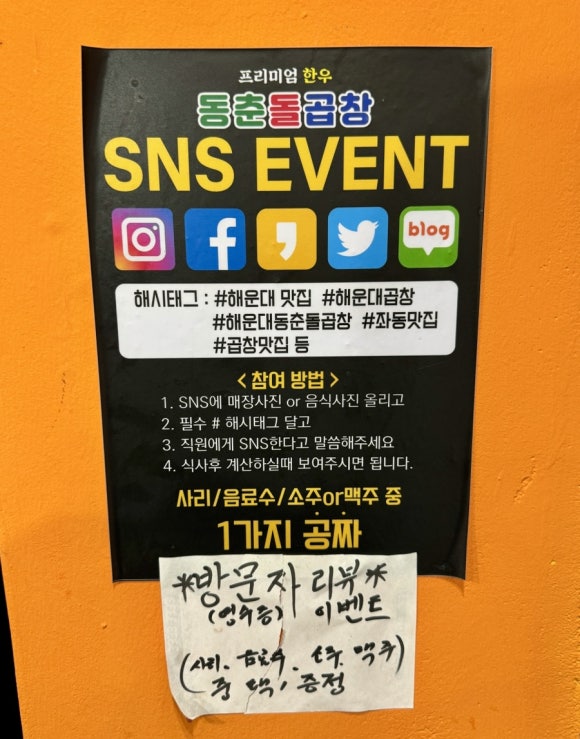 프리미엄 한우
동춘돌곱창
SNS EVENT
blog
해시태그 : #해운대 맛집 #해운대곱창
#해운대동춘돌곱창 #좌동맛집
#곱창맛집 등
< 참여 방법 >
1. SNS에 매장사진 or 음식사진 올리고
2. 필수 # 해시태그 달고
3. 직원에게 SNS한다고 말씀해주세요
4. 식사후 계산하실때 보여주시면 됩니다.
사리/음료수/소주or맥주 중
1가지 공짜
*방문자 리뷰*
(영수증) 이벤트
(사리. 음료수. 소주. 맥주)
중 택1 증정